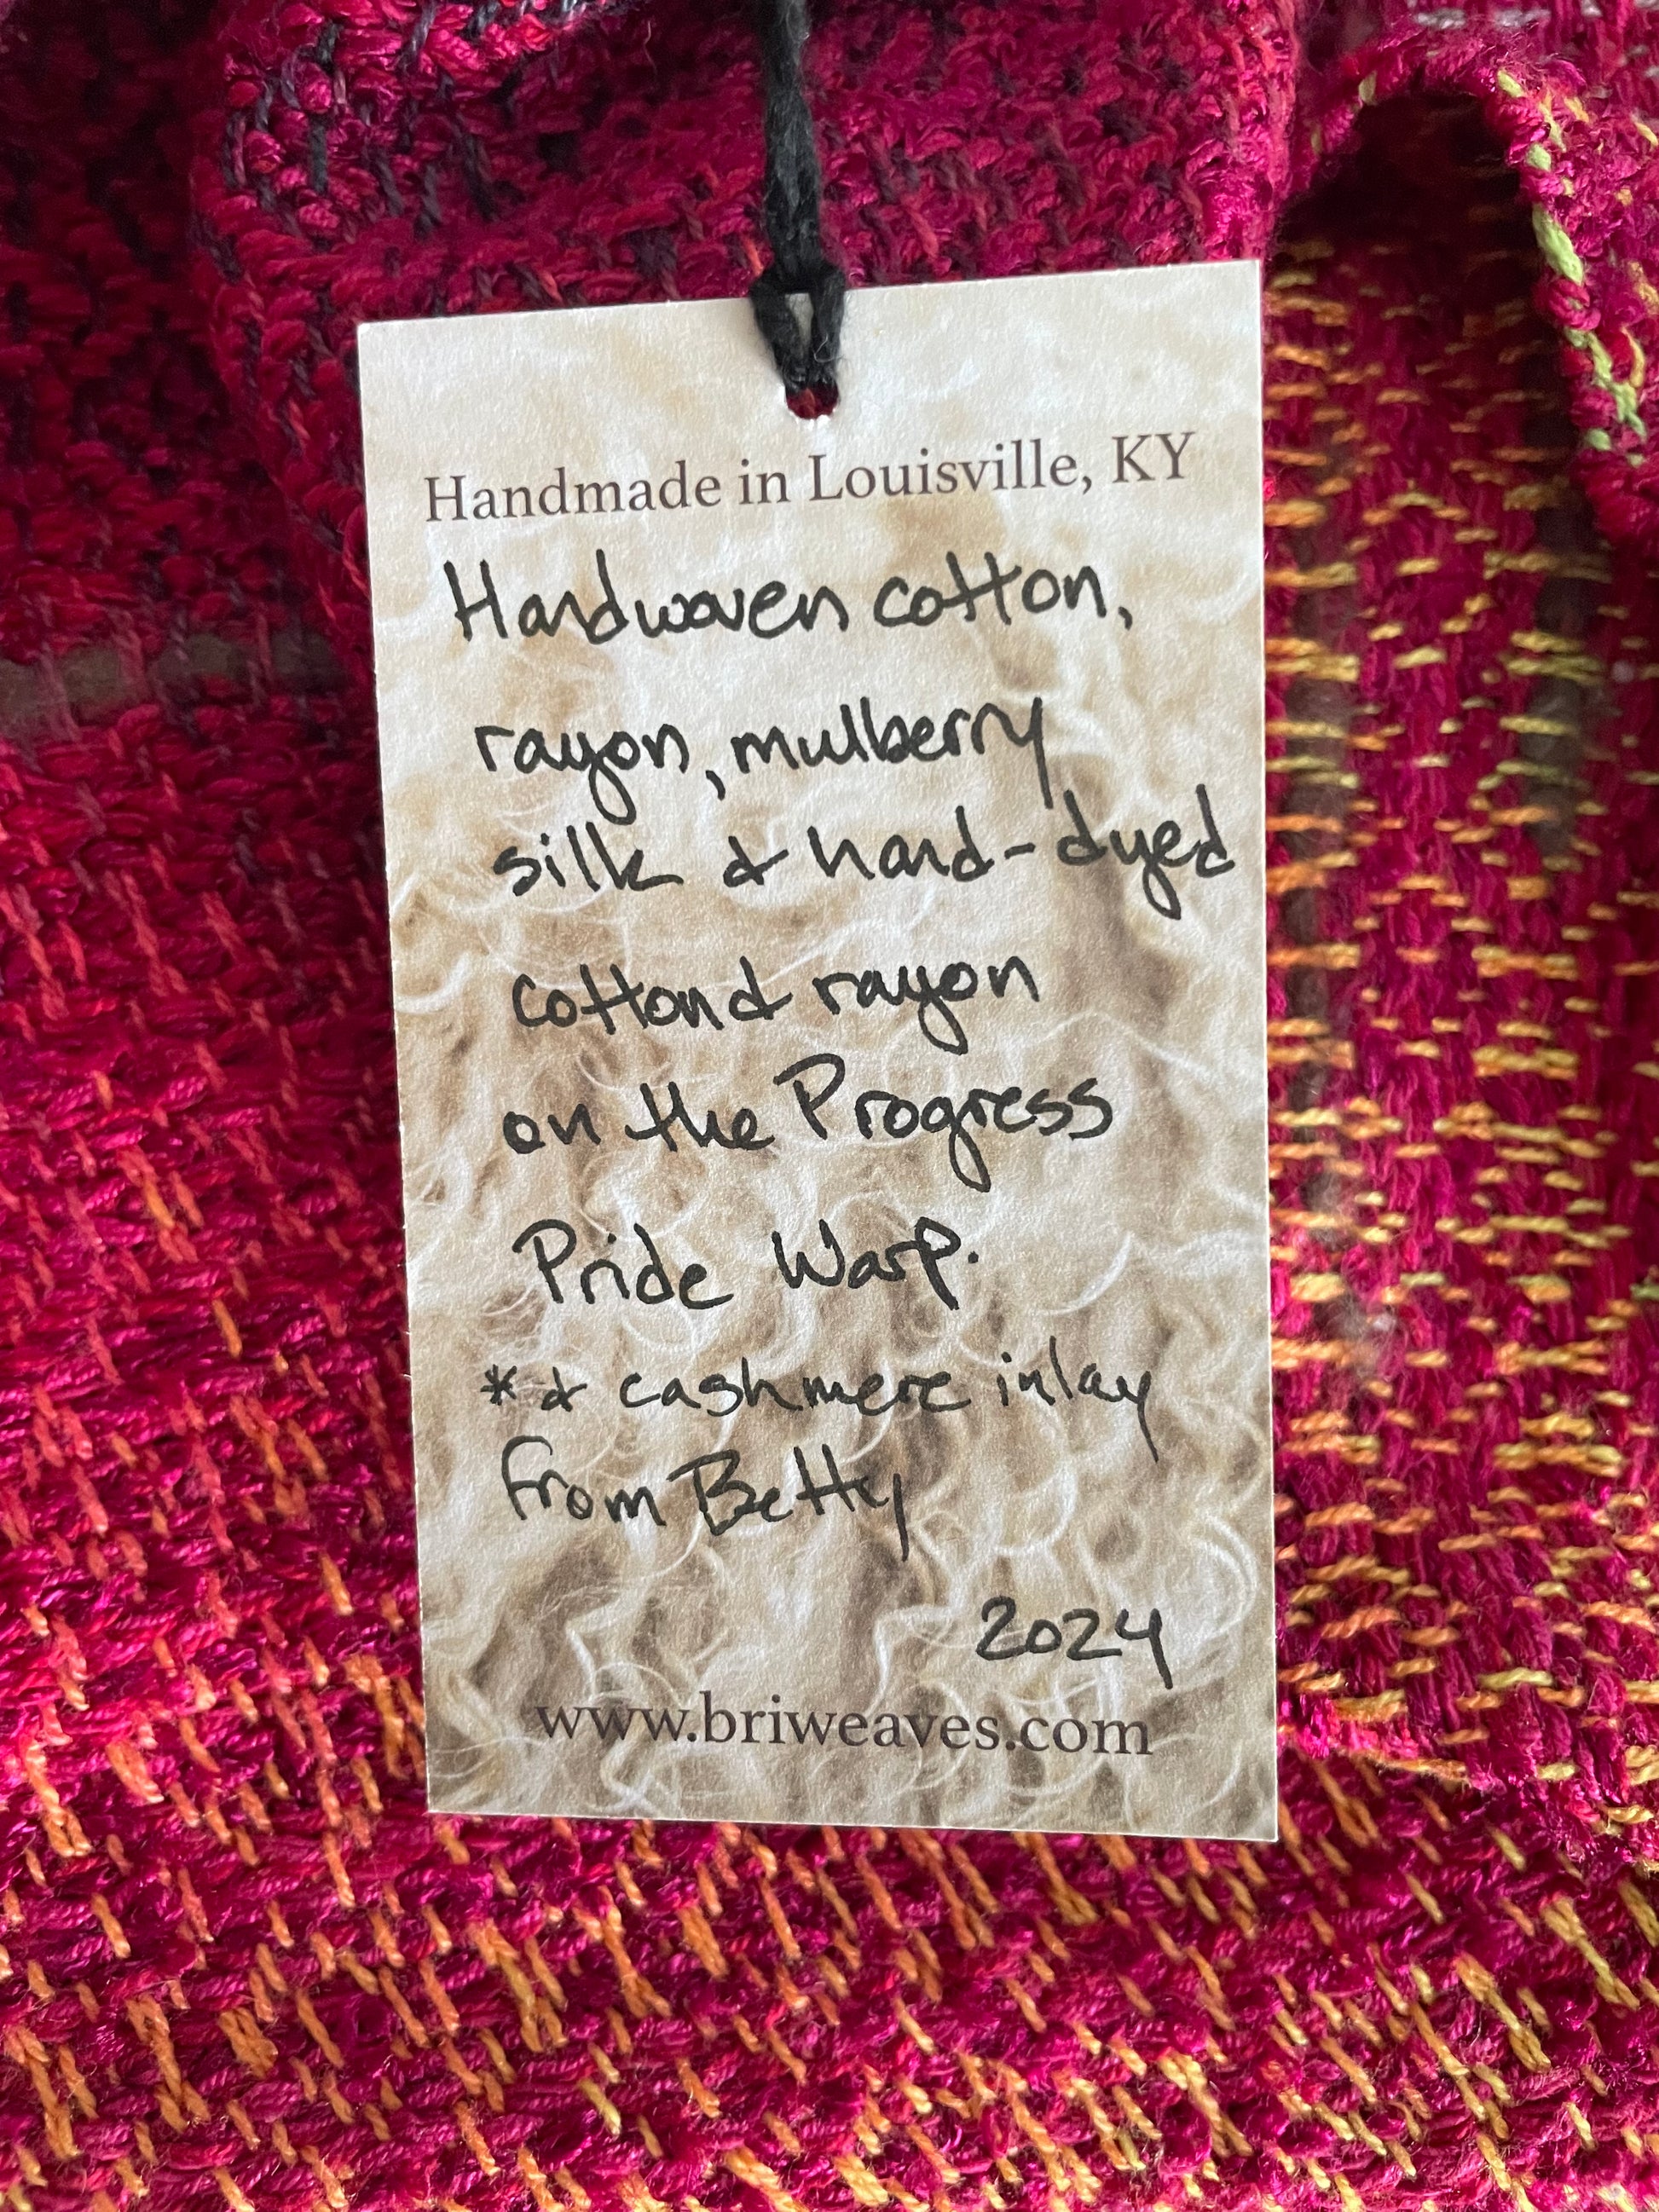 Handmade in Louisville, KY
Handwoven cotton,
rayon, mulberry
silk & hand-dyed
cotton & rayon
on the Progress
Pride Warp.
* & cashmere inlay
from Betty
2024
www.briweaves.com